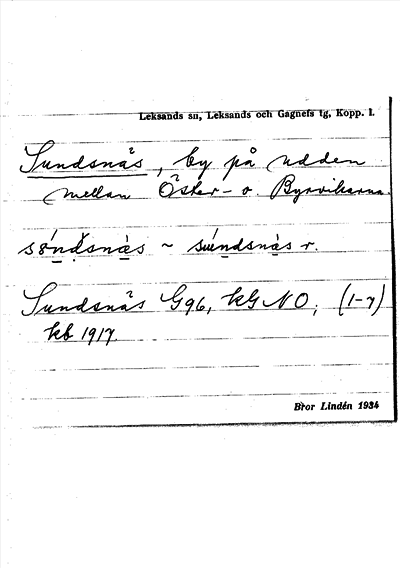 Leksands sn, Leksands och Gagnefs tg, Kopp. l.
Sundsnäs, by på udden
mellan Öster- o. Byrvikarna.
sö́ndsnäs ~ súndsnäs r.
Sundsnäs G96, kG NO; (1-7)
kb 1917.
Bror Lindén 1934